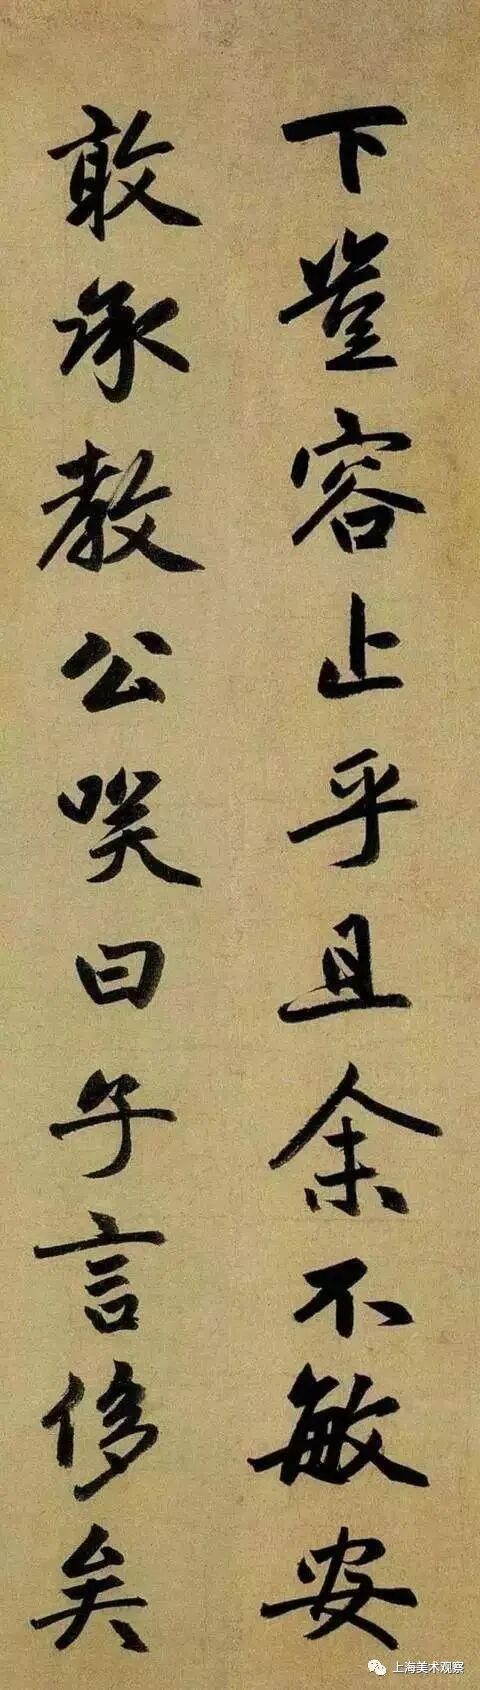 下豈容止乎且余不敏安
敢承教公笑曰子言侈矣
上海美术观察